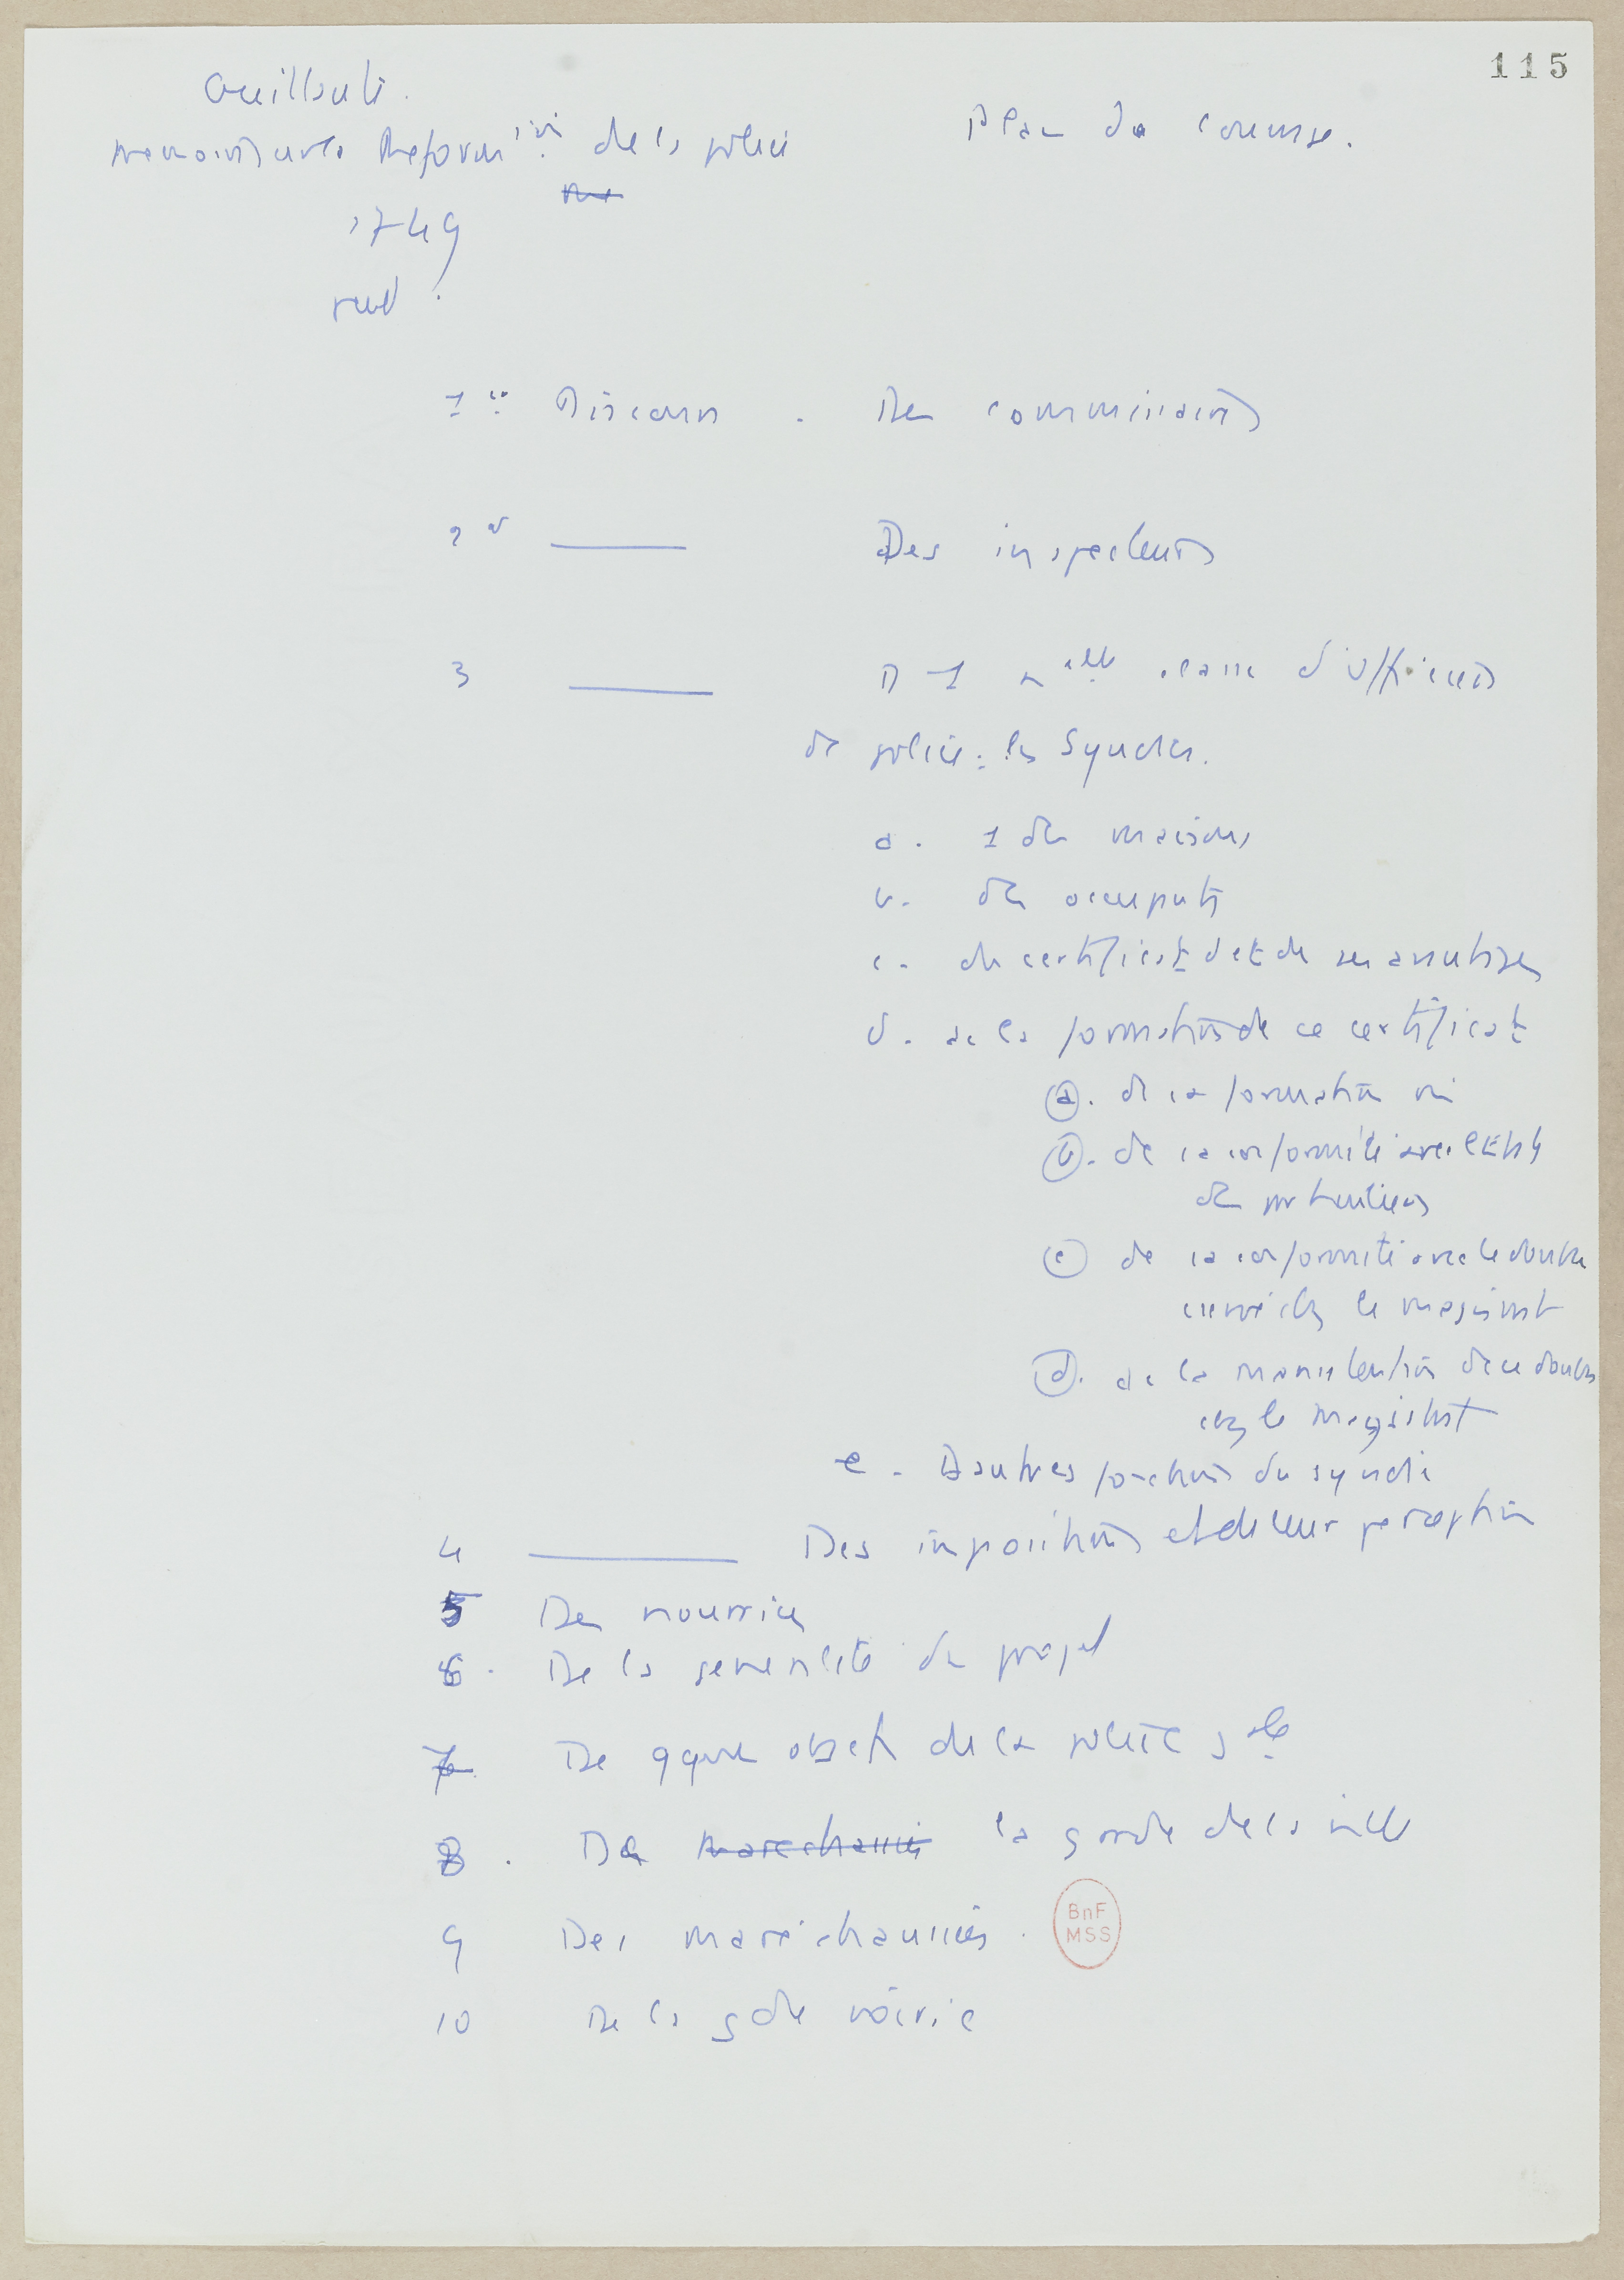 115
Guillauté.
Memoire sur la Reformation de la police
Plan de l'ouvrage.
1749
1er Discours. Des commissaires
2e ——— Des inspecteurs
3 ——— D 1 nelle classe d'officiers
de police : les Syndics.
a. 1 des maisons
b. des occupants
c. du certificat et de ses avantages
d. de la formation de ce certificat
ⓐ. de la formation
ⓑ. de la conformité avec
des particuliers
ⓒ de la conformité avec le double
chez le magistrat
ⓓ. de la manutention de ce double
chez le magistrat
e. D'autres fonctions du syndic
4 ——— Des impositions et de leur perception
5 Des nourrices
6. De la generalité du projet
7 De qques objets de la police gle
8. De marechaussée la garde de la ville
9 Des maréchaussées.
BnF
MSS
10 De la gde voirie